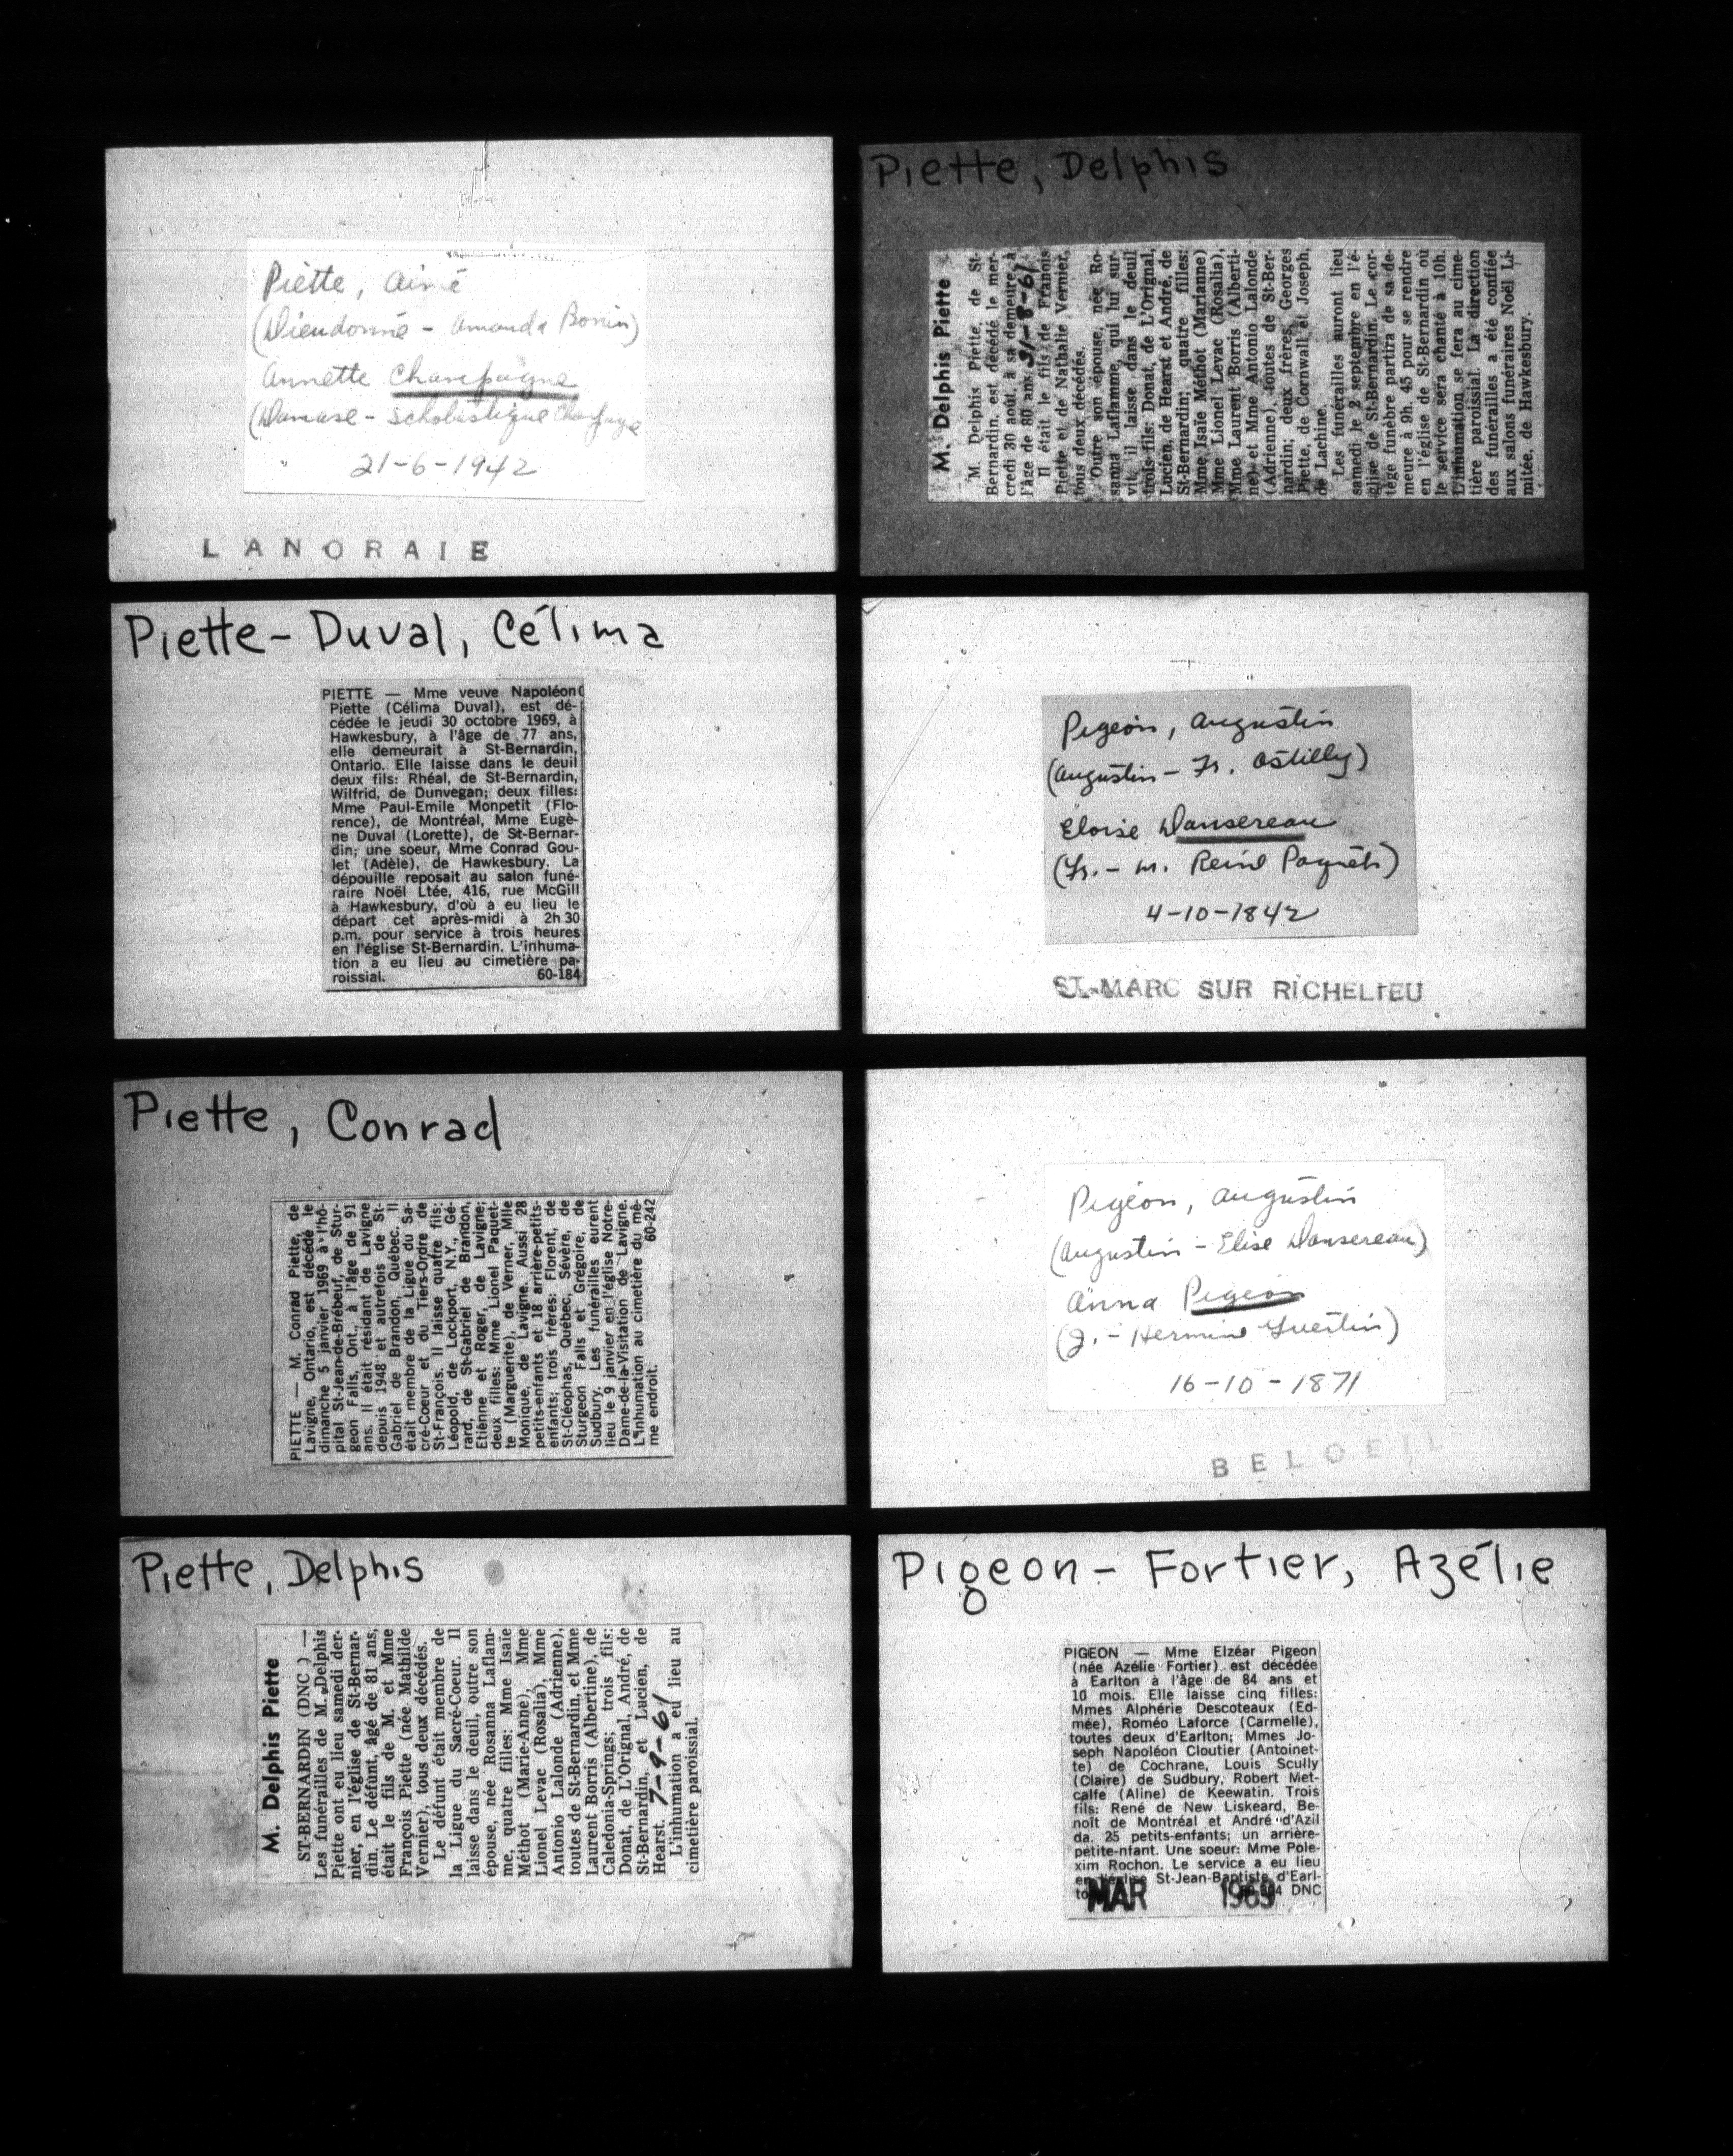 Piette, Aimé
(Dieudonné - Amanda Bonin)
Annette Champagne
(Damase - Scholastique Champagne
21-6-1942
LANORAIE
Piette-Duval, Célima
PIETTE — Mme veuve Napoléon
Piette (Célima Duval), est dé-
cédée le jeudi 30 octobre 1969, à
Hawkesbury, à l'âge de 77 ans,
elle demeurait à St-Bernardin,
Ontario. Elle laisse dans le deuil
deux fils: Rhéal, de St-Bernardin,
Wilfrid, de Dunvegan; deux filles:
Mme Paul-Emile Monpetit (Flo-
rence), de Montréal, Mme Eugè-
ne Duval (Lorette), de St-Bernar-
din; une soeur, Mme Conrad Gou-
let (Adèle), de Hawkesbury. La
dépouille reposait au salon funé-
raire Noël Ltée, 416, rue McGill
à Hawkesbury, d'où a eu lieu le
départ cet après-midi à 2h 30
p.m. pour service à trois heures
en l'église St-Bernardin. L'inhuma-
tion a eu lieu au cimetière pa-
roissial. 60-184
Piette, Conrad
PIETTE — M. Conrad Piette, de
Lavigne, Ontario, est décédé le
dimanche 5 janvier 1969 à l'hô-
pital St-Jean-de-Brébeuf, de Stur-
geon Falls, Ont., à l'âge de 91
ans. Il était résidant de Lavigne
depuis 1948 et autrefois de St-
Gabriel de Brandon, Québec. Il
était membre de la Ligue du Sa-
cré-Coeur et du Tiers-Ordre de
St-François. Il laisse quatre fils:
Léopold, de Lockport, N.Y., Gé-
rard, de St-Gabriel de Brandon,
Etienne et Roger, de Lavigne;
deux filles: Mme Lionel Paquet-
te (Marguerite), de Verner, Mlle
Monique, de Lavigne. Aussi 28
petits-enfants et 18 arrière-petits-
enfants; trois frères: Florent, de
St-Cléophas, Québec, Sévère, de
Sturgeon Falls et Grégoire, de
Sudbury. Les funérailles eurent
lieu le 9 janvier en l'église Notre-
Dame-de-la-Visitation de Lavigne.
L'inhumation au cimetière du mê-
me endroit. 60-242
Piette, Delphis
M. Delphis Piette
ST-BERNARDIN (DNC) —
Les funérailles de M. Delphis
Piette ont eu lieu samedi der-
nier, en l'église de St-Bernar-
din. Le défunt, âgé de 81 ans,
était le fils de M. et Mme
François Piette (née Mathilde
Vernier), tous deux décédés.
Le défunt était membre de
la Ligue du Sacré-Coeur. Il
laisse dans le deuil, outre son
épouse, née Rosanna Laflam-
me, quatre filles: Mme Isaïe
Méthot (Marie-Anne), Mme
Lionel Levac (Rosalia), Mme
Antonio Lalonde (Adrienne),
toutes de St-Bernardin, et Mme
Laurent Borris (Albertine), de
Caledonia-Springs; trois fils:
Donat, de L'Orignal, André, de
St-Bernardin, et Lucien, de
Hearst. 7-9-61
L'inhumation a eu lieu au
cimetière paroissial.
Piette, Delphis
M. Delphis Piette
M. Delphis Piette, de St-
Bernardin, est décédé le mer-
credi 30 août, à sa demeure, à
l'âge de 80 ans. 31-8-61
Il était le fils de Franois
Piette et de Nathalie Vernier,
tous deux décédés.
Outre son épouse, née Ro-
sanna Laflamme, qui lui sur-
vit, il laisse dans le deuil
trois fils: Donat, de L'Orignal,
Lucien, de Hearst et André, de
St-Bernardin; quatre filles:
Mme Isaïe Méthot (Marianne)
Mme Lionel Levac (Rosalia),
Mme Laurent Borris (Alberti-
ne) et Mme Antonio Lalonde
(Adrienne), toutes de St-Ber-
nardin; deux frères, Georges
Piette, de Cornwall et Joseph,
de Lachine.
Les funérailles auront lieu
samedi le 2 septembre en l'é-
glise de St-Bernardin. Le cor-
tège funèbre partira de sa de-
meure à 9h. 45 pour se rendre
en l'église de St-Bernardin où
le service sera chanté à 10h.
L'inhumation se fera au cime-
tière paroissial. La direction
des funérailles a été confiée
aux salons funéraires Noël Li-
mitée, de Hawkesbury.
Pigeon, Augustin
(Augustin - Fr. Ostilly)
Eloise Dansereau
(Fr. - M. Reine Paquette)
4-10-1842
ST-MARC SUR RICHELIEU
Pigeon, Augustin
(Augustin - Elise Dansereau)
Anna Pigeon
(J. - Hermine Guertin)
16-10-1871
BELOEIL
Pigeon-Fortier, Azélie
PIGEON — Mme Elzéar Pigeon
(née Azélie Fortier) est décédée
à Earlton à l'âge de 84 ans et
10 mois. Elle laisse cinq filles:
Mmes Alphérie Descoteaux (Ed-
mée), Roméo Laforce (Carmelle),
toutes deux d'Earlton; Mmes Jo-
seph Napoléon Cloutier (Antoinet-
te) de Cochrane, Louis Scully
(Claire) de Sudbury, Robert Met-
calfe (Aline) de Keewatin. Trois
fils: René de New Liskeard, Be-
noît de Montréal et André d'Azil
da. 25 petits-enfants; un arrière-
petite-nfant. Une soeur: Mme Pole-
xim Rochon. Le service a eu lieu
en l'église St-Jean-Baptiste d'Earl-
to DNC
MAR 1969